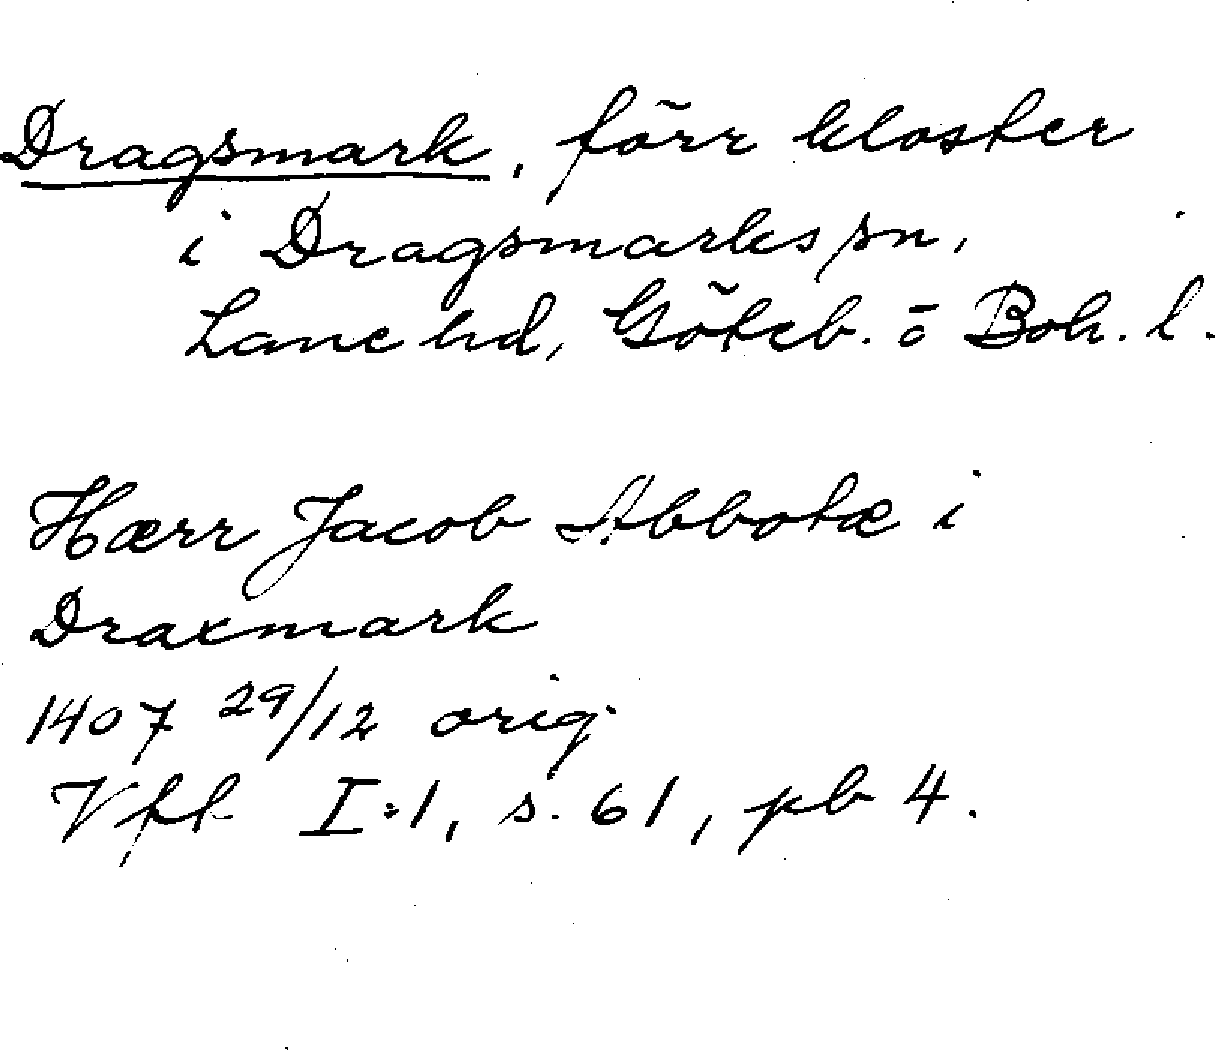 Dragsmark, förr kloster
i Dragsmarks sn,
Lane hd, Göteb. o Boh. l.
Hærr Jacob Abbotæ i
Draxmark
1407 29/12 orig
I:1, s. 61, pb 4.